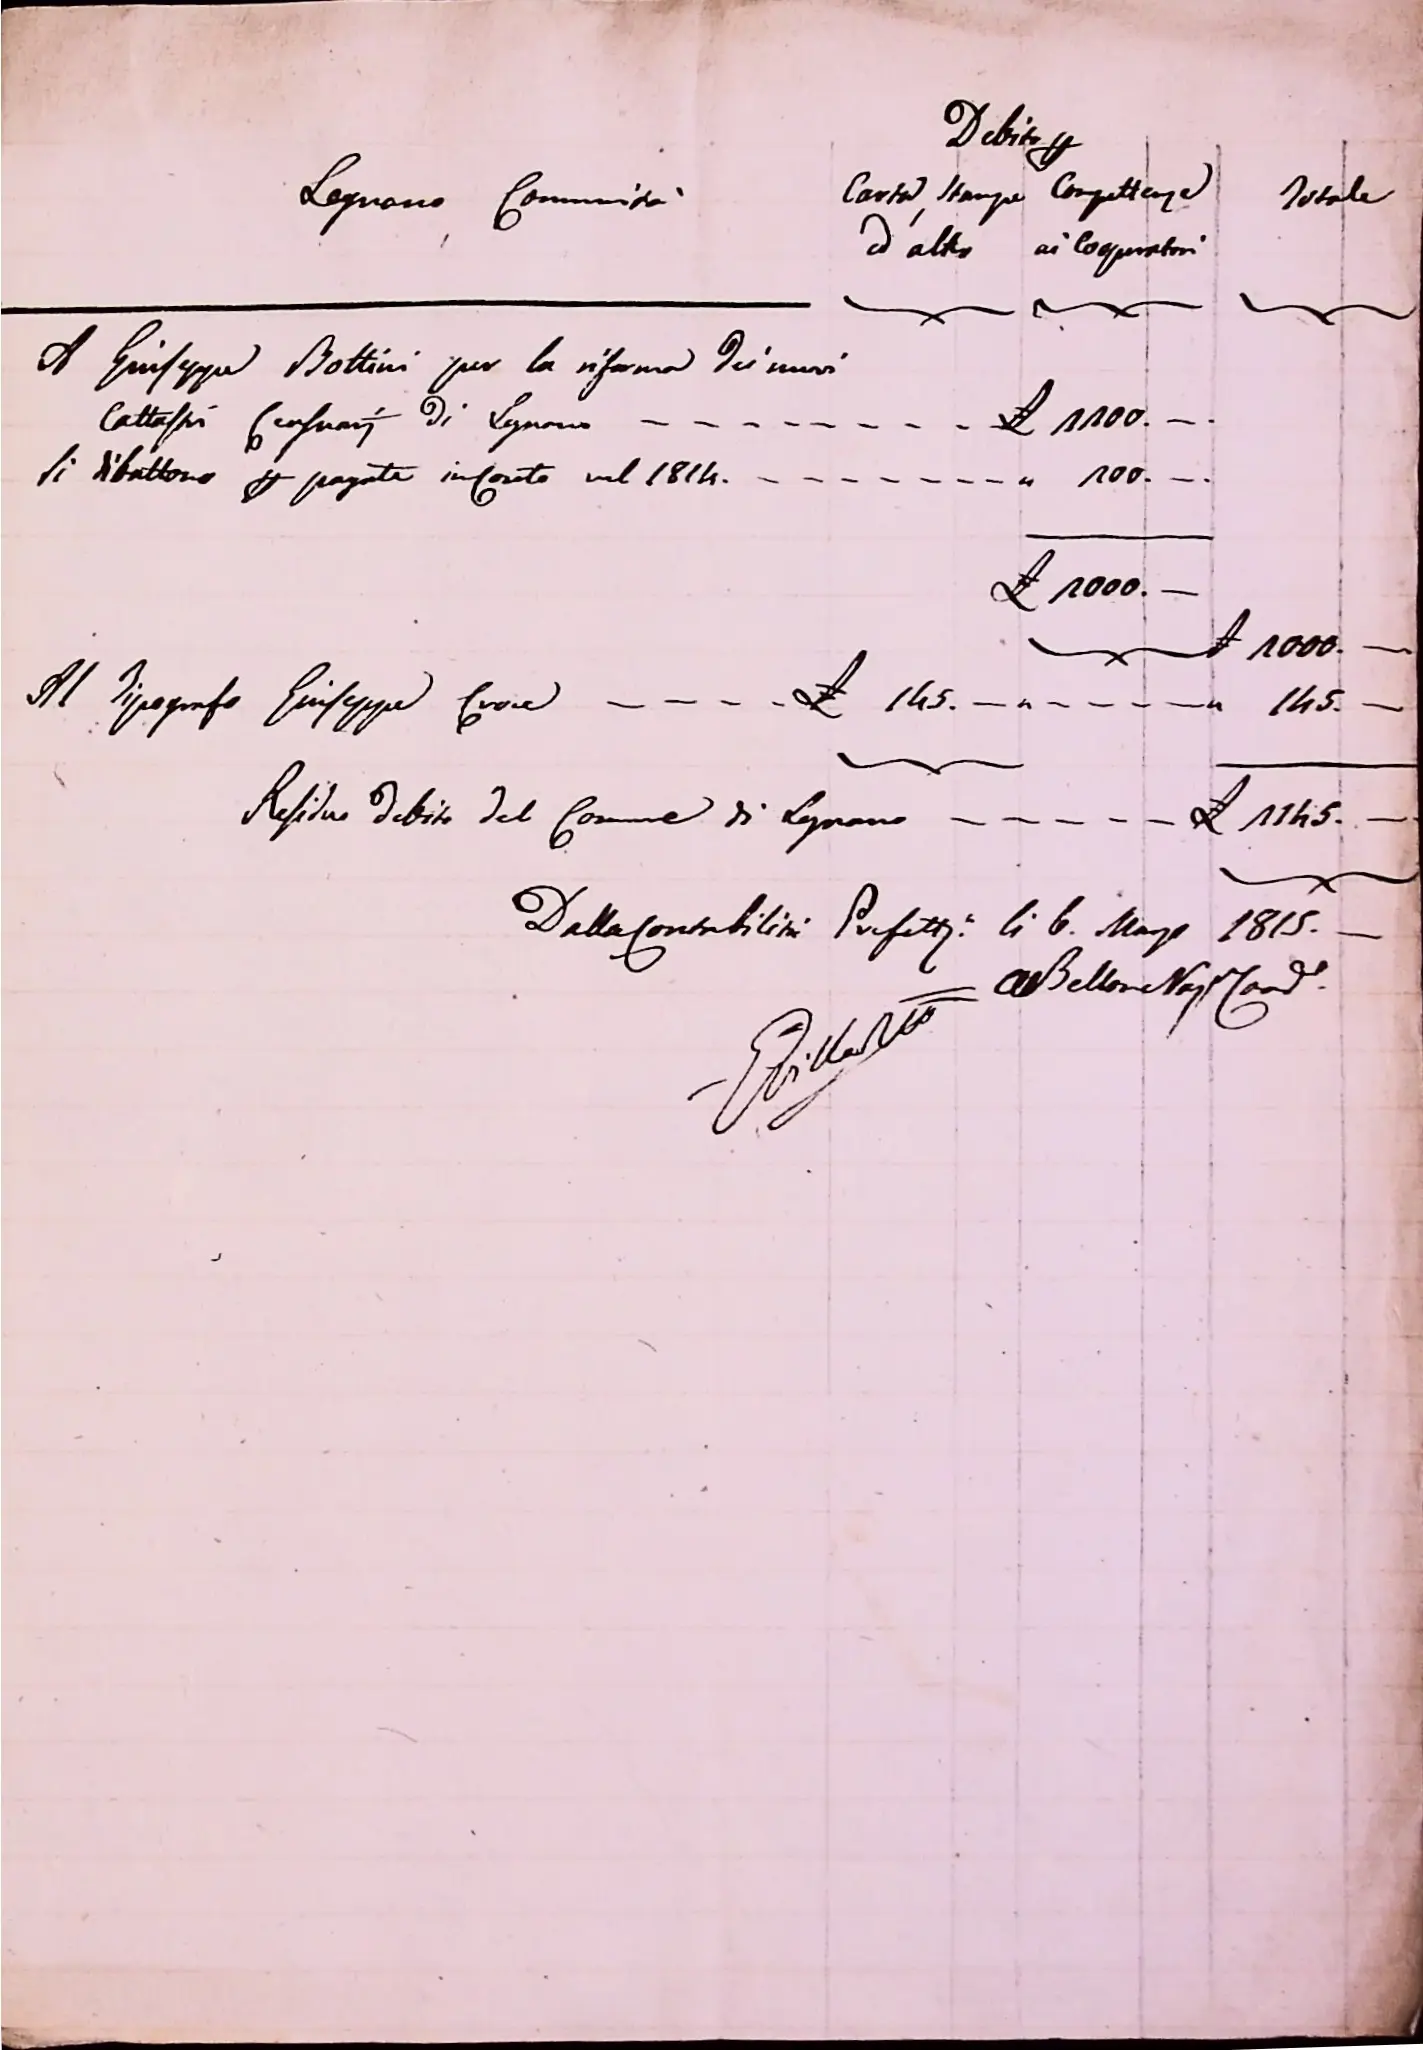 Debito pp
Legnano Communità Carta, Stampe Competenze Totale
ed altro ai Cooperatori
A Giuseppe Bottini per la riforma dei nuovi
Cattastri Censuarj di Legnano £ 1100. —
Si dibattono pp pagate in Conto nel 1814. " 100. —
£ 1000. —
£ 1000. —
Al Tipografo Giuseppe Croce £ 145. — " — " 145. —
Residuo debito del Comune di Legnano £ 1145. —
Dalla Contabilità Prefettz.ª li 6. Marzo 1815. —
Bellone